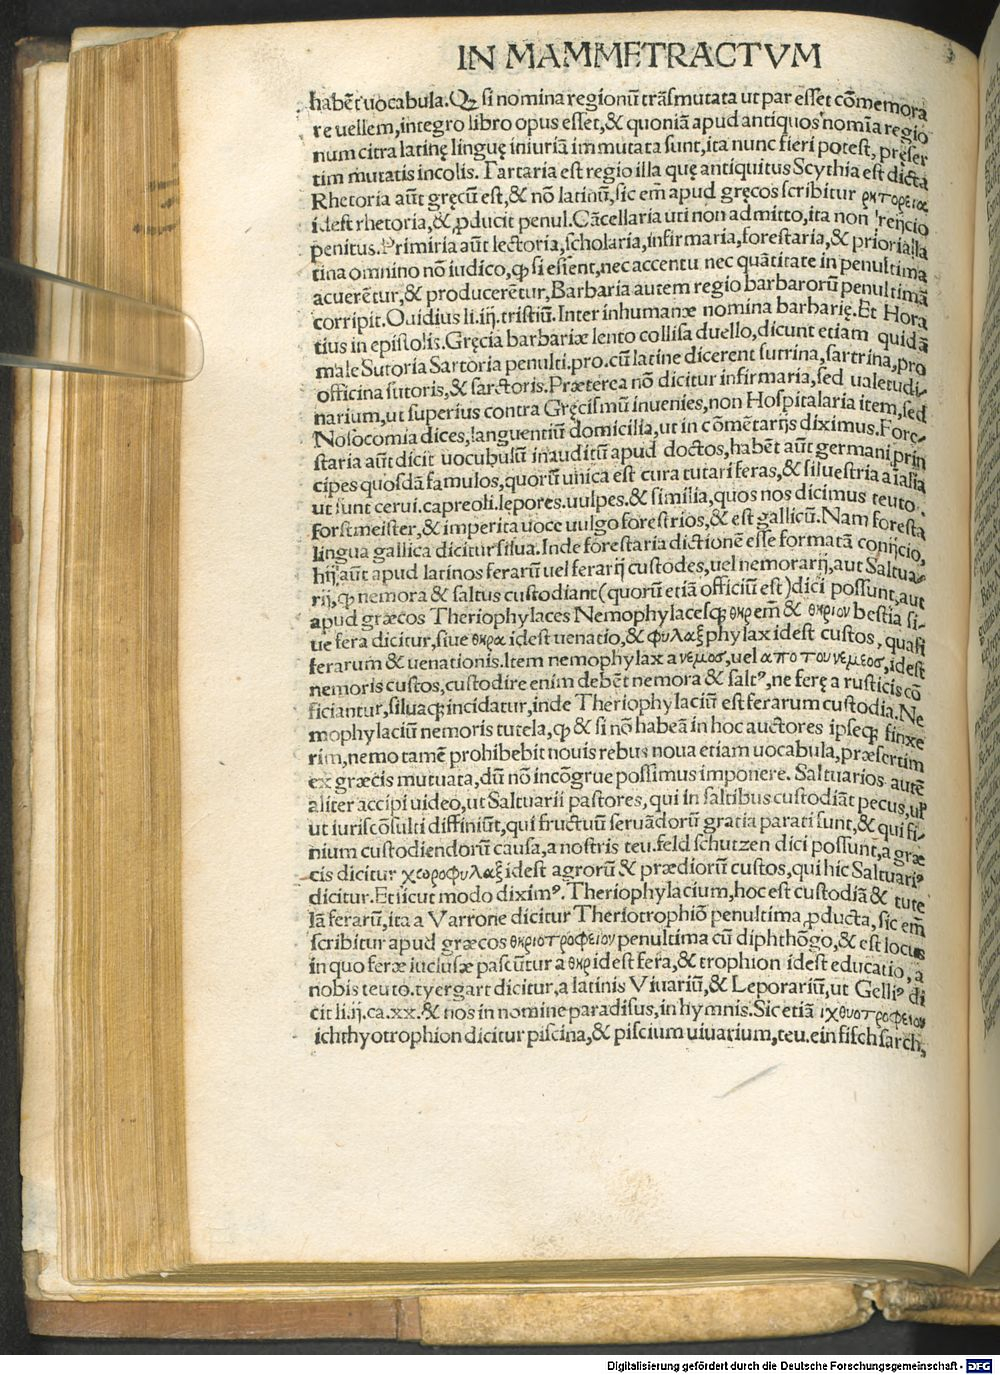 IN MAMMETRACTVM
habēt uocabula. Qꝫ si nomina regionū trāsmutata ut par esset cōmemora
re uellem, integro libro opus esset, & quoniā apud antiquos nomīa regio
num citra latinę linguę iniuriā immutata sunt, ita nunc fieri potest, pręser
tim mutatis incolis. Tartaria est regio illa quę antiquitus Scythia est dicta
Rhetoria aūt gręcū est, & nō latinū, sic em̄ apud gręcos scribitur ρητορεια
idest rhetoria, & ꝓducit penul. Cācellaria uti non admitto, ita non reijcio
penitus. Primiria aūt lectoria, scholaria, infirmaria, forestaria, & prioria, la
tina omnino nō iudico, ꝙ si essent, nec accentu nec quātitate in penultima
acuerētur, & producerētur, Barbaria autem regio barbarorū penultimā
corripit. Ouidius li. iij. tristiū. Inter inhumanæ nomina barbarię. Et Hora
tius in epistolis. Gręcia barbariæ lento collisa duello, dicunt etiam quidā
male Sutoria Sartoria penulti. pro. cū latine dicerent sutrina, sartrina, pro
officina sutoris, & sarctoris. Præterea nō dicitur infirmaria, sed ualetudi-
narium, ut superius contra Gręcismū inuenies, non Hospitalaria item, sed
Nosocomia dices, languentiū domicilia, ut in cōmētarijs diximus. Fore-
staria aūt dicit uocubulū inauditū apud doctos, habēt aūt germani prin
cipes quosdā famulos, quorū unica est cura tutari feras, & siluestria aīalia
ut sunt cerui. capreoli. lepores. uulpes. & similia, quos nos dicimus teuto.
Forstmeister, & imperita uoce uulgo forestrios, & est gallicū. Nam foresta
lingua gallica dicitur silua. Inde forestaria dictionē esse formatā conijcio,
hij aūt apud latinos ferarū uel ferarij custodes, uel nemorarij, aut Saltua-
rij, ꝙ nemora & saltus custodiant (quorū etiā officiū est) dici possunt, aut
apud græcos Theriophylaces Nemophylacesqꝫ θηρ em̄ & θηριον bestia si-
ue fera dicitur, siue θηρα idest uenatio, & φυλαξ phylax idest custos, quasi
ferarum & uenationis. Item nemophylax a νεμος, uel απο του νεμεος, idest
nemoris custos, custodire enim debēt nemora & saltꝰ, ne ferę a rusticis cō
ficiantur, siluaqꝫ incidatur, inde Theriophylaciū est ferarum custodia. Ne
mophylaciū nemoris tutela, ꝙ & si nō habeā in hoc auctores ipseqꝫ finxe
rim, nemo tamē prohibebit nouis rebus noua etiam uocabula, præsertim
ex græcis mutuata, dū nō incōgrue possimus imponere. Saltuarios autē
aliter accipi uideo, ut Saltuarii pastores, qui in saltibus custodiāt pecus, uel
ut iuriscōsulti diffiniūt, qui fructuū seruādorū gratia parati sunt, & qui fi-
nium custodiendorū causa, a nostris teu. feld schutzen dici possunt, a græ
cis dicitur χωροφυλαξ idest agrorū & prædiorū custos, qui hic Saltuariꝰ
dicitur. Et sicut modo diximꝰ. Theriophylacium, hoc est custodiā & tute
lā ferarū, ita a Varrone dicitur Theriotrophiō penultima ꝓducta, sic em̄
scribitur apud græcos θηριοτροφειον penultima cū diphthōgo, & est locus
in quo feræ inclusæ pascūtur a θηρ idest fera, & trophion idest educatio, a
nobis teuto. tyergart dicitur, a latinis Viuariū, & Leporariū, ut Gelliꝰ di
cit li. ij. ca. xx. & nos in nomine paradisus, in hymnis. Sic etiā ιχθυοτροφειον
ichthyotrophion dicitur piscina, & piscium uiuarium, teu. ein fisch sarch,
Digitalisierung gefördert durch die Deutsche Forschungsgemeinschaft - DFG